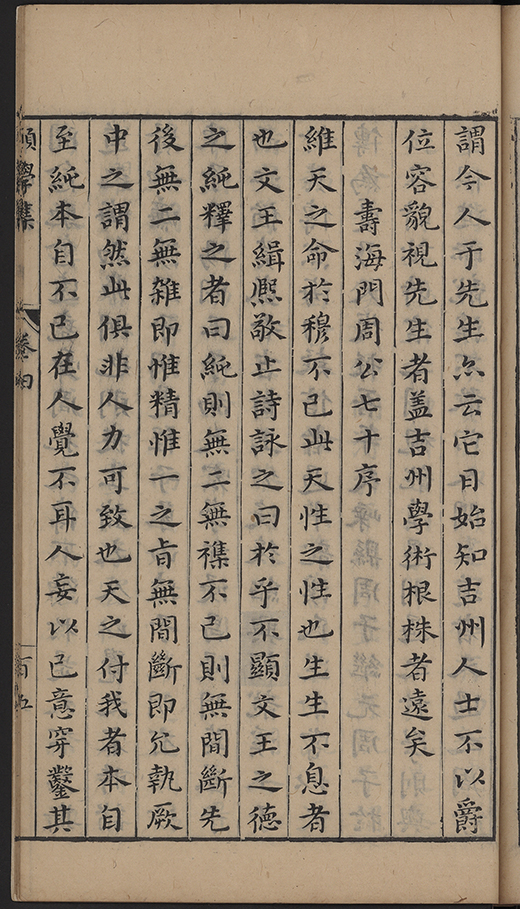 謂今人于先生亦云它日始知吉州人士不以爵
位容貌視先生者蓋吉州學術根株者遠矣
壽海門周公七十序
維天之命於穆不已此天性之性也生生不息者
也文王緝熙敬止詩詠之曰於乎不顯文王之德
之純釋之者曰純則無二無襍不已則無間斷先
後無二無雜即惟精惟一之旨無間斷即允執厥
中之謂然此俱非人力可致也天之付我者本自
至純本自不已在人覺不耳人妄以已意穿鑿其
願學集
卷四
百五